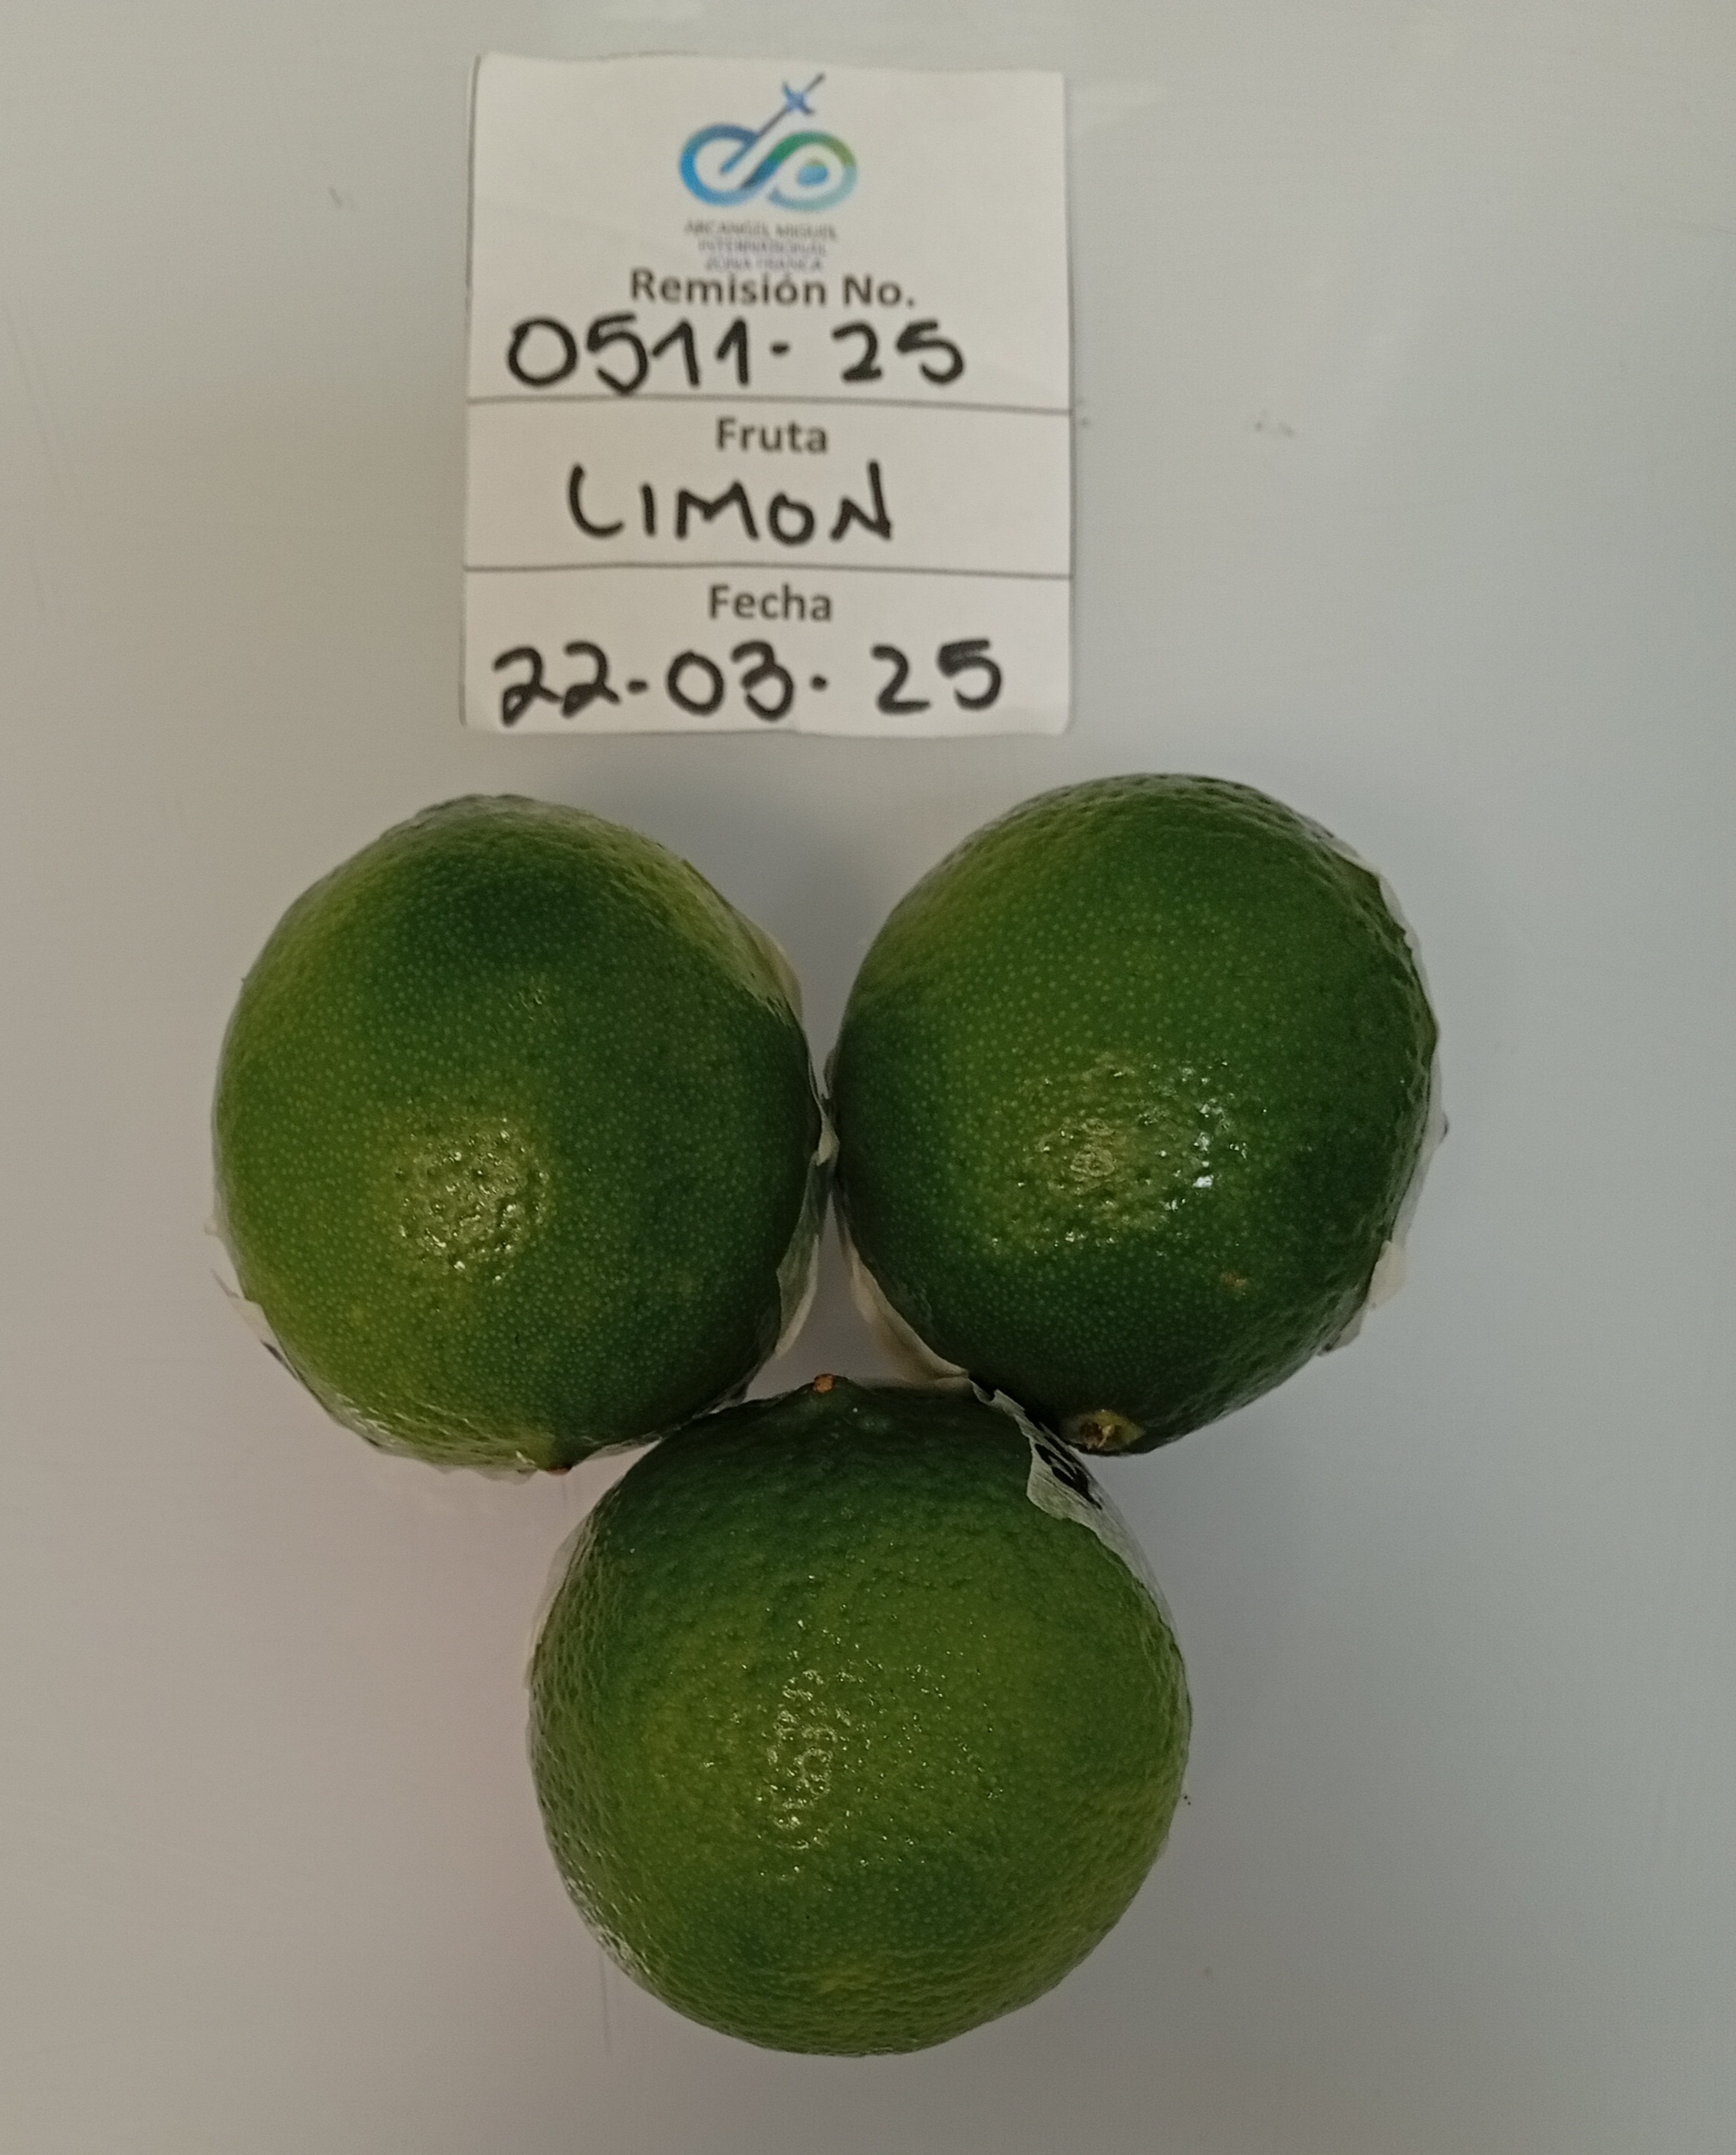 ARCANGEL MIGUEL
INTERNATIONAL
ZONA FRANCA
Remisión No.
0511-25
Fruta
LIMON
Fecha
22-03-25